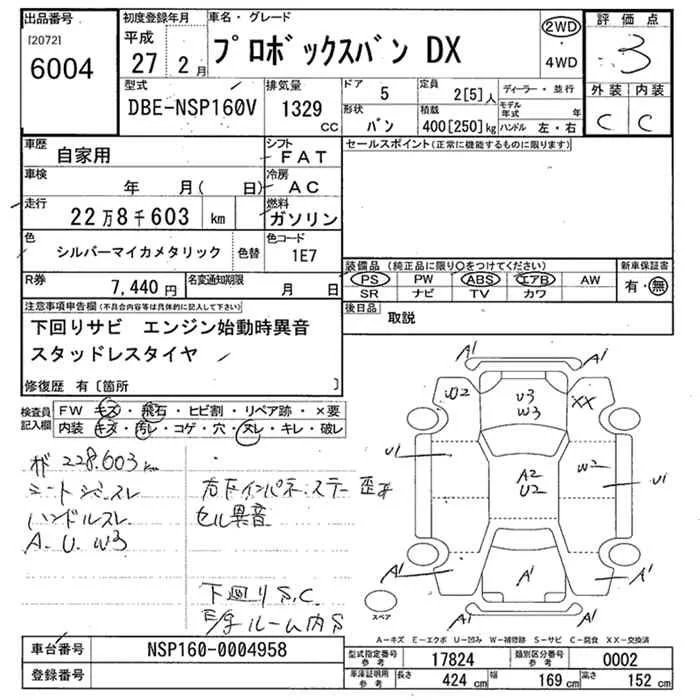 出品番号
[2072]
6004
初度登録年月
平成
27 2月
車名・グレード
プロボックスバン DX
2WD
・
4WD
評価点
3
外装 内装
C C
型式
DBE-NSP160V
排気量
1329
CC
ドア
5
定員
2[5]人
ディーラー・並行
形状
バン
積載
400[250]kg
モデル年式 年
ハンドル 左・右
車歴
自家用
シフト
FAT
車検
年 月( 日)
冷房
AC
走行
22万8千603 km
燃料
ガソリン
色
シルバーマイカメタリック
色替
色コード
1E7
R券
7,440円
名変通知期限
月 日
セールスポイント(正常に機能するものに限ります)
装備品(純正品に限り〇をつけてください)
PS PW ABS エアB AW
SR ナビ TV カワ
新車保証書
有・無
後日品
取説
注意事項申告欄(不具合内容等は具体的に記入して下さい)
下回りサビ エンジン始動時異音
スタッドレスタイヤ
修復歴 有〔箇所 〕
検査員記入欄
FW キズ・飛石・ヒビ割・リペア跡・×要
内装 キズ・汚レ・コゲ・穴・スレ・キレ・破レ
228.603km
ハンドルスレ
A.U.W3
セル異音
下回りS.C.
ルーム内S
A1 A1
UO2
U3
W3
XX
U1
A2
U2
W2
U1
A1
A1
A1
A1 A1
スペア
A-キズ E-エクボ U-凹み W-補修跡 S-サビ C-腐食 XX-交換済
車台番号
NSP160-0004958
登録番号
型式指定番号参考
17824
類別区分番号参考
0002
車庫証明用参考
長さ
424 cm
幅
169 cm
高さ
152 cm